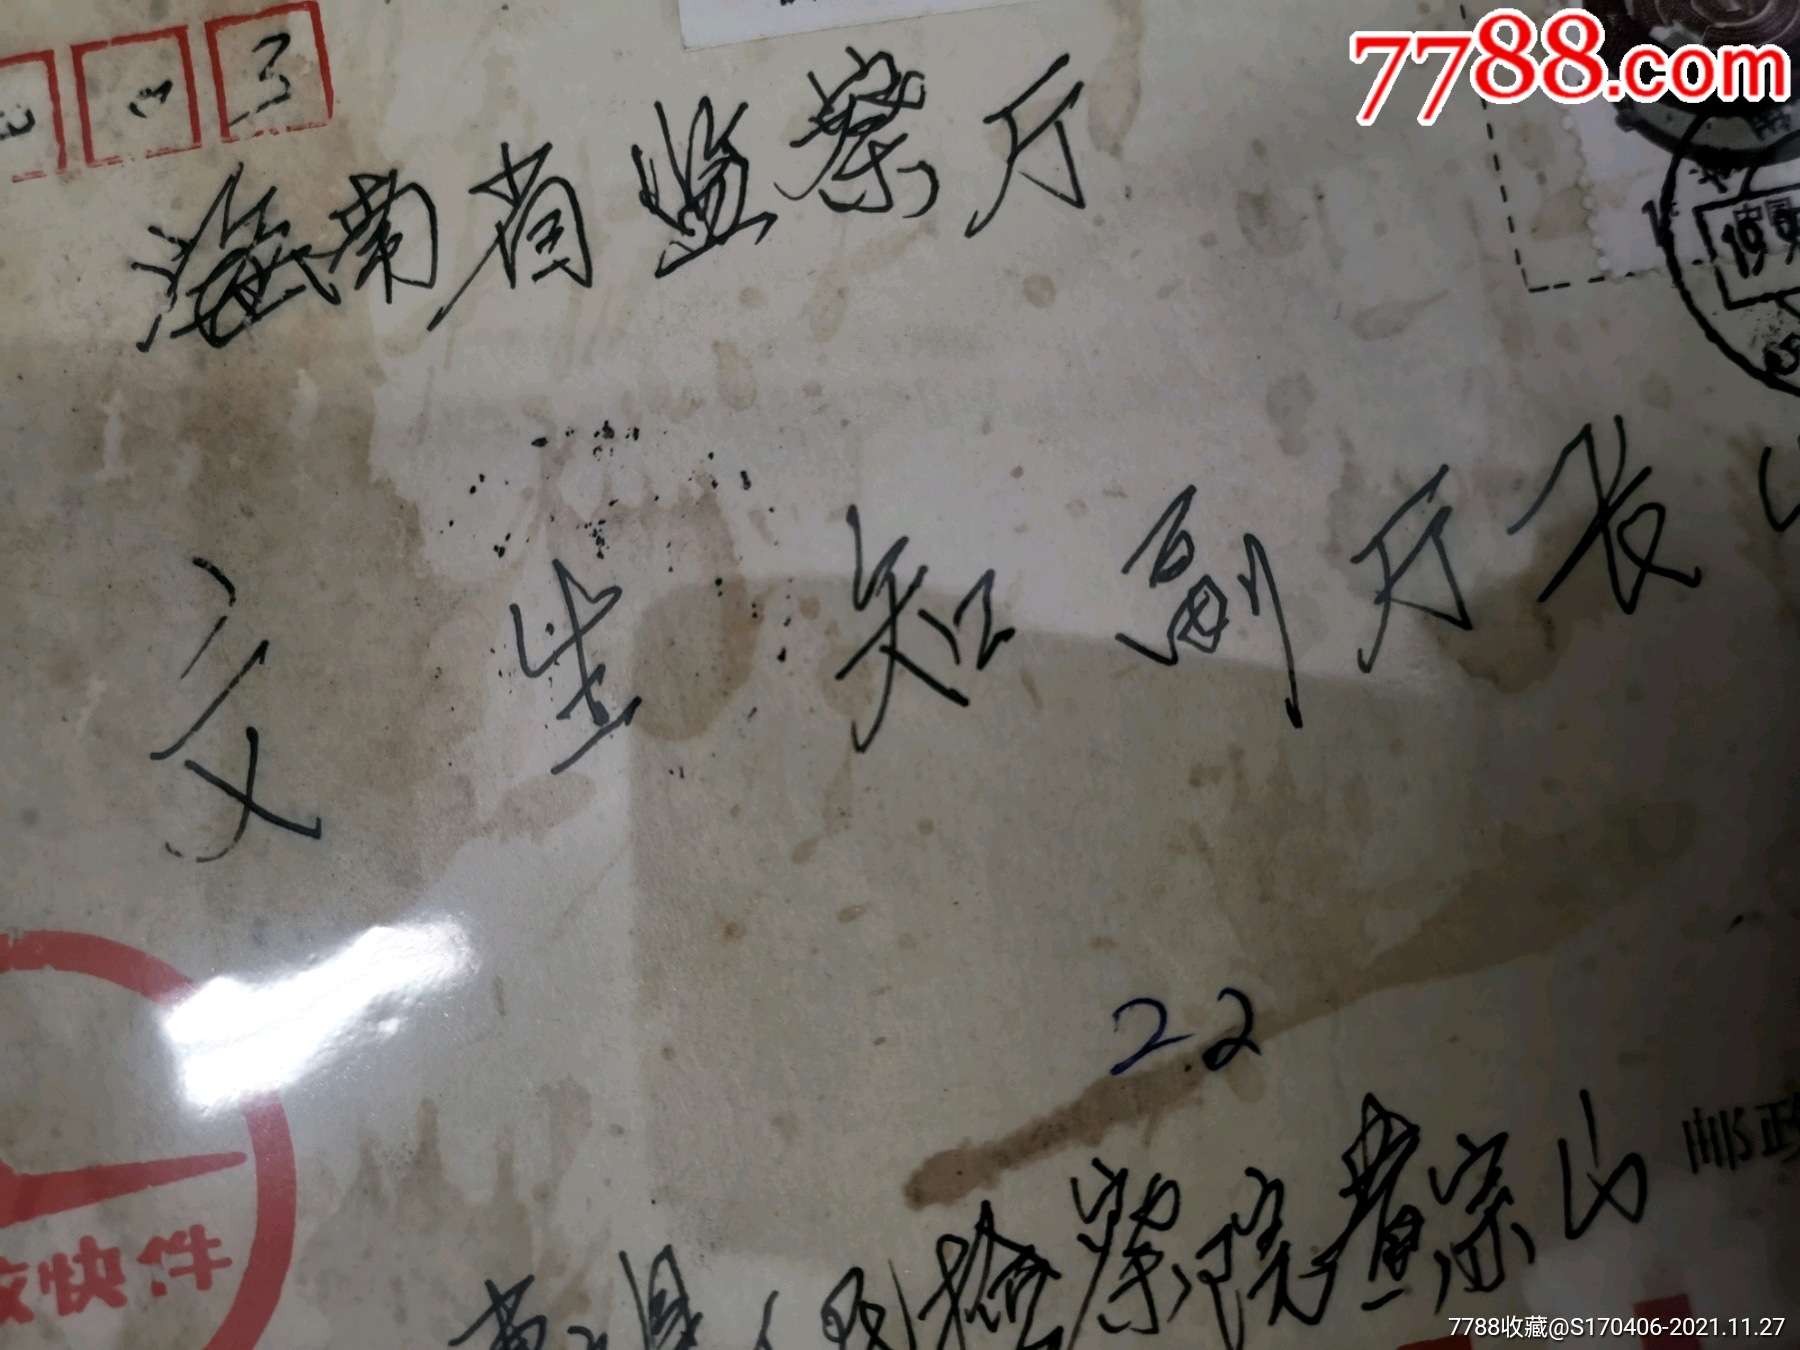 7788.com
3
海南省监察厅
文生知副厅长
22
县人民检察院黄宗山
邮政
快件
7788收藏@S170406-2021.11.27